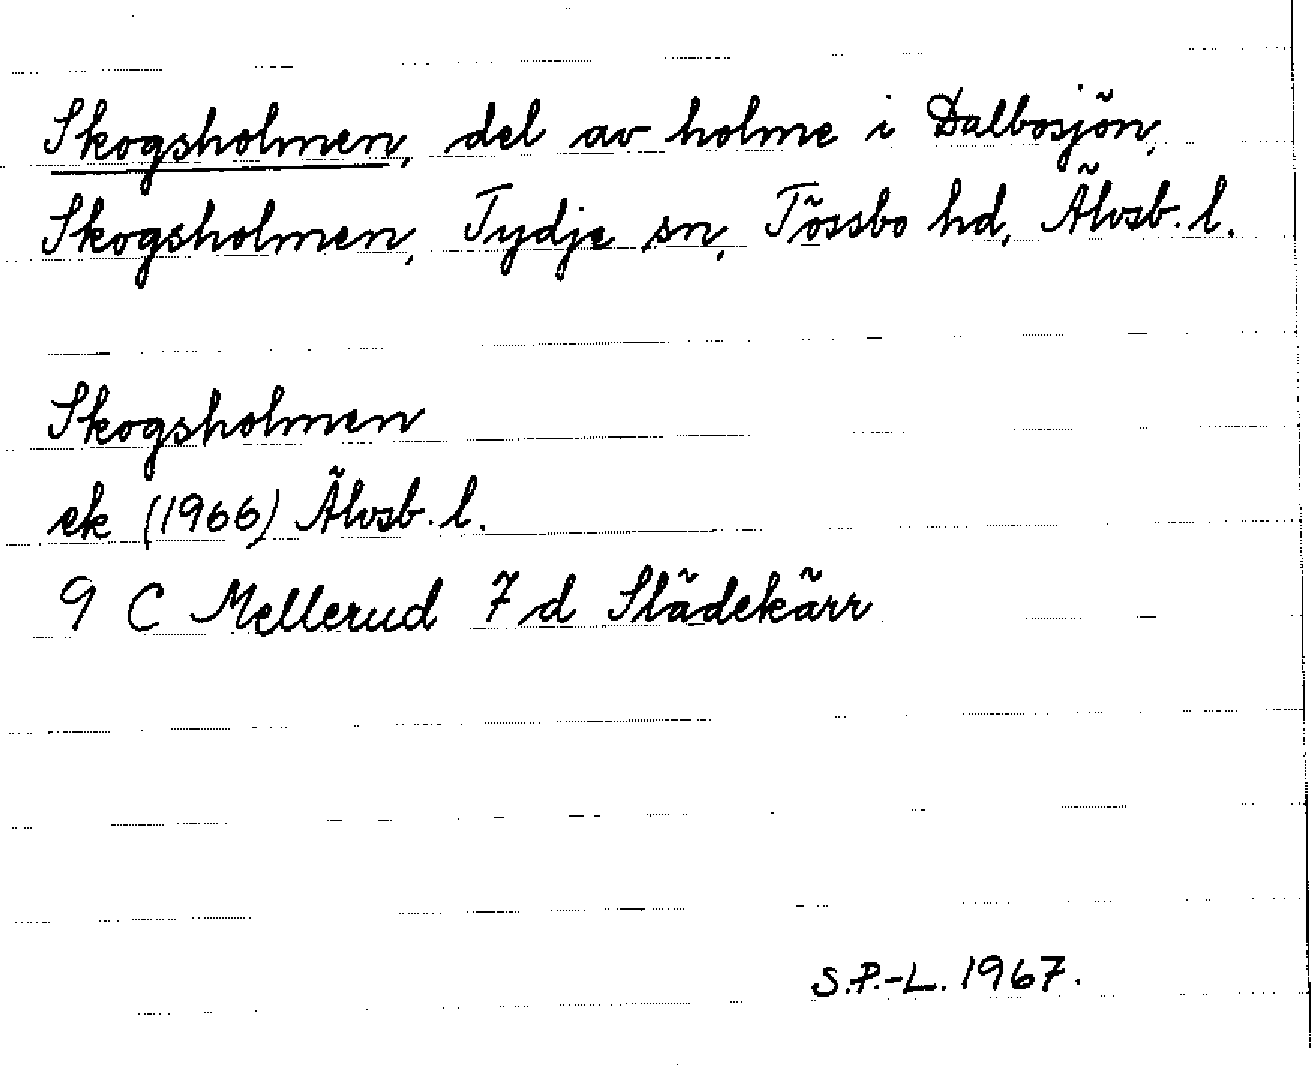 Skogsholmen, del av holme i Dalbosjön,
Skogsholmen, Tydje sn, Tössbo hd, Älvsb. l.
Skogsholmen
ek (1966) Älvsb. l.
9 C Mellerud 7 d Slädekärr
S.P.-L. 1967.